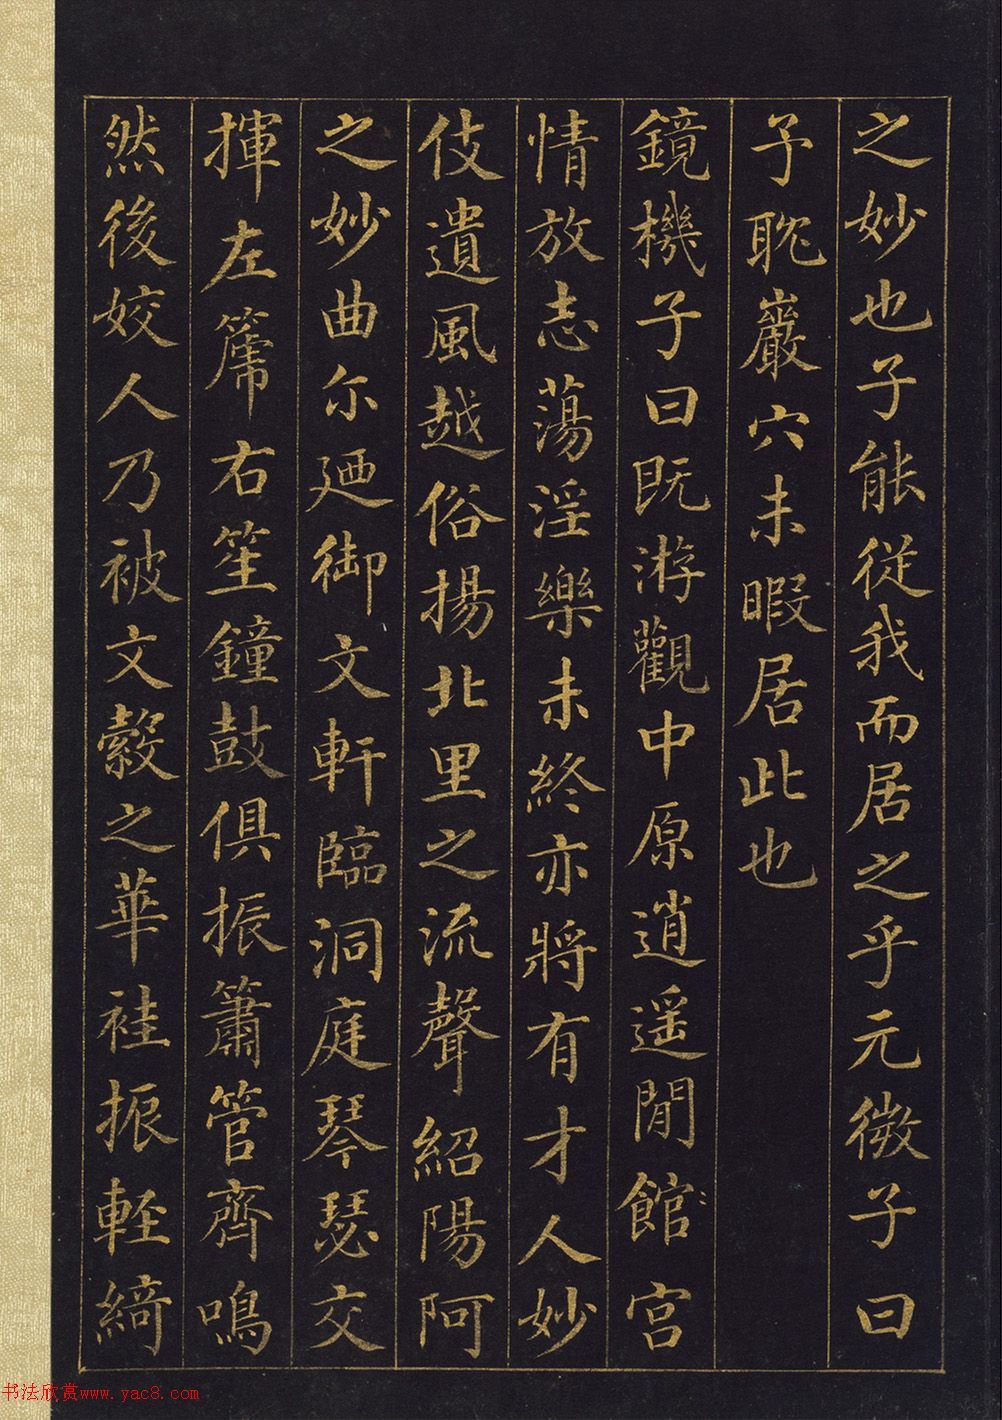 之妙也子能從我而居之乎元微子曰
予耽巖穴未暇居此也
鏡機子曰既游觀中原逍遥閒館宫
情放志蕩淫樂未終亦將有才人妙
伎遺風越俗揚北里之流聲紹陽阿
之妙曲尔廼御文軒臨洞庭琴瑟交
揮左篪右笙鐘鼓俱振簫管齊鳴
然後姣人乃被文縠之華袿振輕綺
书法欣赏www.yac8.com